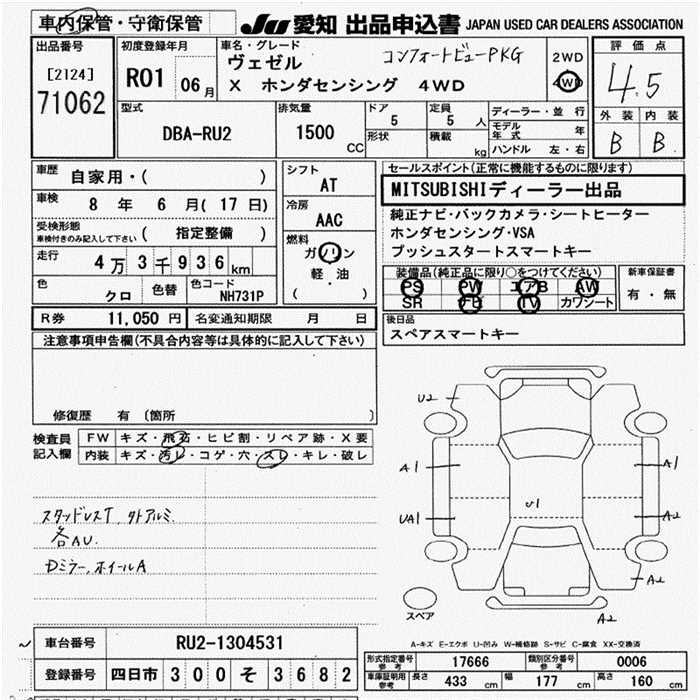 車内保管・守衛保管
JU 愛知 出品申込書 JAPAN USED CAR DEALERS ASSOCIATION
出品番号
[2124]
71062
初度登録年月
R01 06月
車名・グレード
ヴェゼル
コンフォートビューPKG
X ホンダセンシング 4WD
2WD
4WD
評価点
4.5
外装 内装
B B
型式
DBA-RU2
排気量
1500 CC
ドア
5
形状
定員
5 人
積載
kg
ディーラー・並行
モデル年式 年
ハンドル 左・右
車歴
自家用・( )
車検
8 年 6 月( 17 日)
受検形態
車検付きのみ記入して下さい ( 指定整備 )
走行
4万3千936km
色
クロ
色替
色コード
NH731P
シフト
AT
冷房
AAC
燃料
ガソリン
軽・油
( )
セールスポイント(正常に機能するものに限ります)
MITSUBISHIディーラー出品
純正ナビ・バックカメラ・シートヒーター
ホンダセンシング・VSA
プッシュスタートスマートキー
装備品(純正品に限り○をつけてください)
PS PW エアB AW
SR TV カワシート
新車保証書
有・無
R券 11,050 円 名変通知期限 月 日
後日品
スペアスマートキー
注意事項申告欄(不具合内容等は具体的に記入して下さい)
修復歴 有 (箇所 )
検査員記入欄
FW キズ・飛石・ヒビ割・リペア跡・X要
内装 キズ・汚レ・コゲ・穴・スレ・キレ・破レ
スタッドレスT、タトアルミ
各AU.
Dミラー、ホイールA
U2
A1
A1
U1
UA1
A2
A2
A2
スペア
A-キズ E-エクボ U-凹み W-補修跡 S-サビ C-腐食 XX-交換済
車台番号
RU2-1304531
登録番号
四日市 300 そ 3682
形式指定番号 参考
17666
類別区分番号 参考
0006
車庫証明用 参考
長さ 433 cm
幅 177 cm
高さ 160 cm